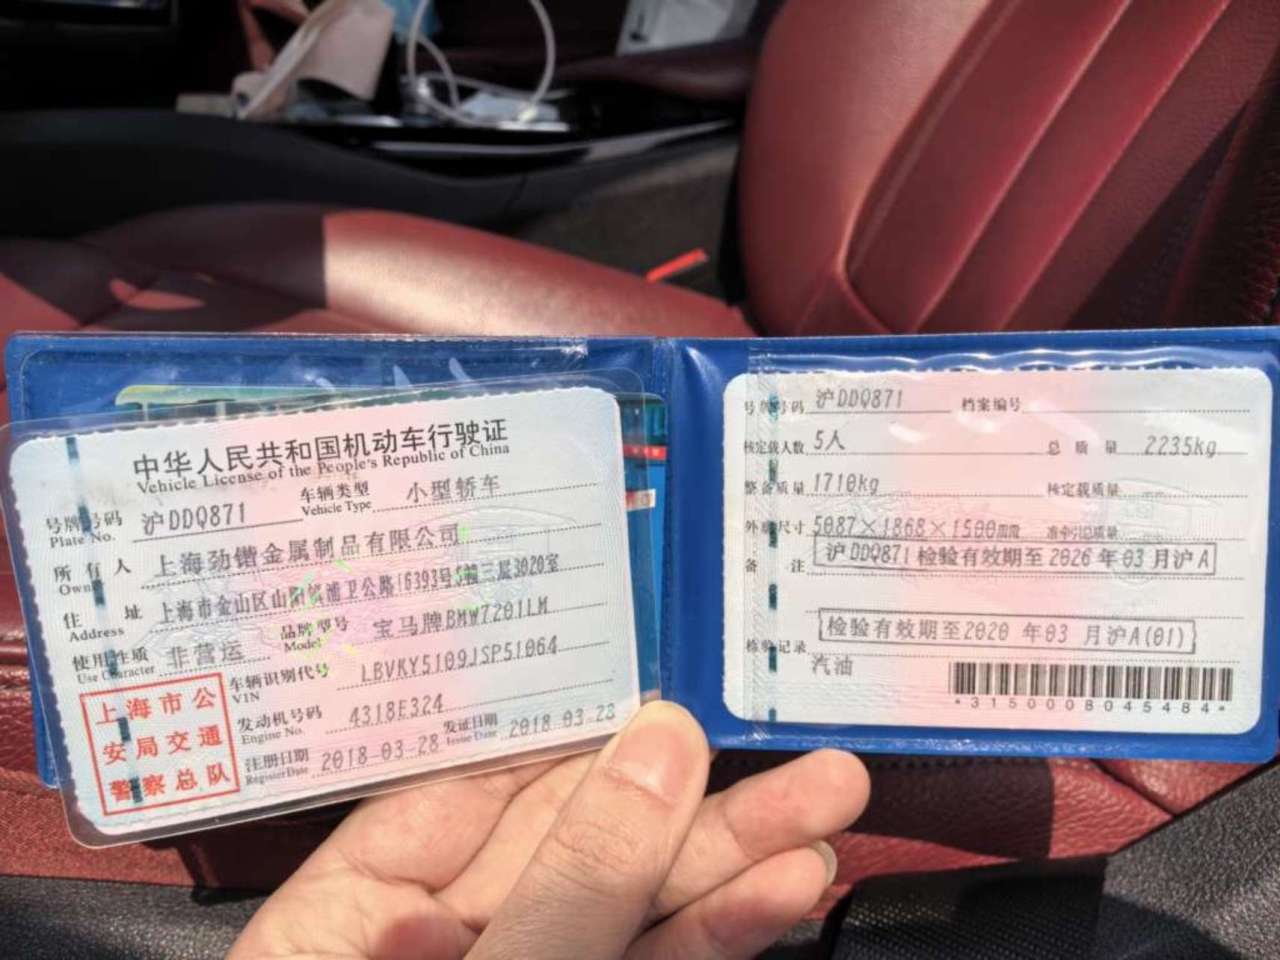 中华人民共和国机动车行驶证
Vehicle License of the People's Republic of China
号牌号码 沪DDQ871 车辆类型 小型轿车
Plate No. Vehicle Type
所有人 上海劲锴金属制品有限公司
Owner
住址 上海市金山区山阳镇浦卫公路16393号5幢三层3020室
Address
使用性质 非营运 品牌型号 宝马牌BMW7201LM
Use Character Model
车辆识别代号 LBVKY5109JSP51064
VIN
发动机号码 4318E324
Engine No.
注册日期 2018-03-28 发证日期 2018-03-28
Register Date Issue Date
上海市公
安局交通
警察总队
号牌号码 沪DDQ871 档案编号
核定载人数 5人 总质量 2235kg
整备质量 1710kg 核定载质量
外廓尺寸 5087×1868×1500mm 准牵引总质量
备注 沪DDQ871 检验有效期至2026年03月沪A
检验有效期至2020年03月沪A(01)
检验记录
汽油
*3150008045484*